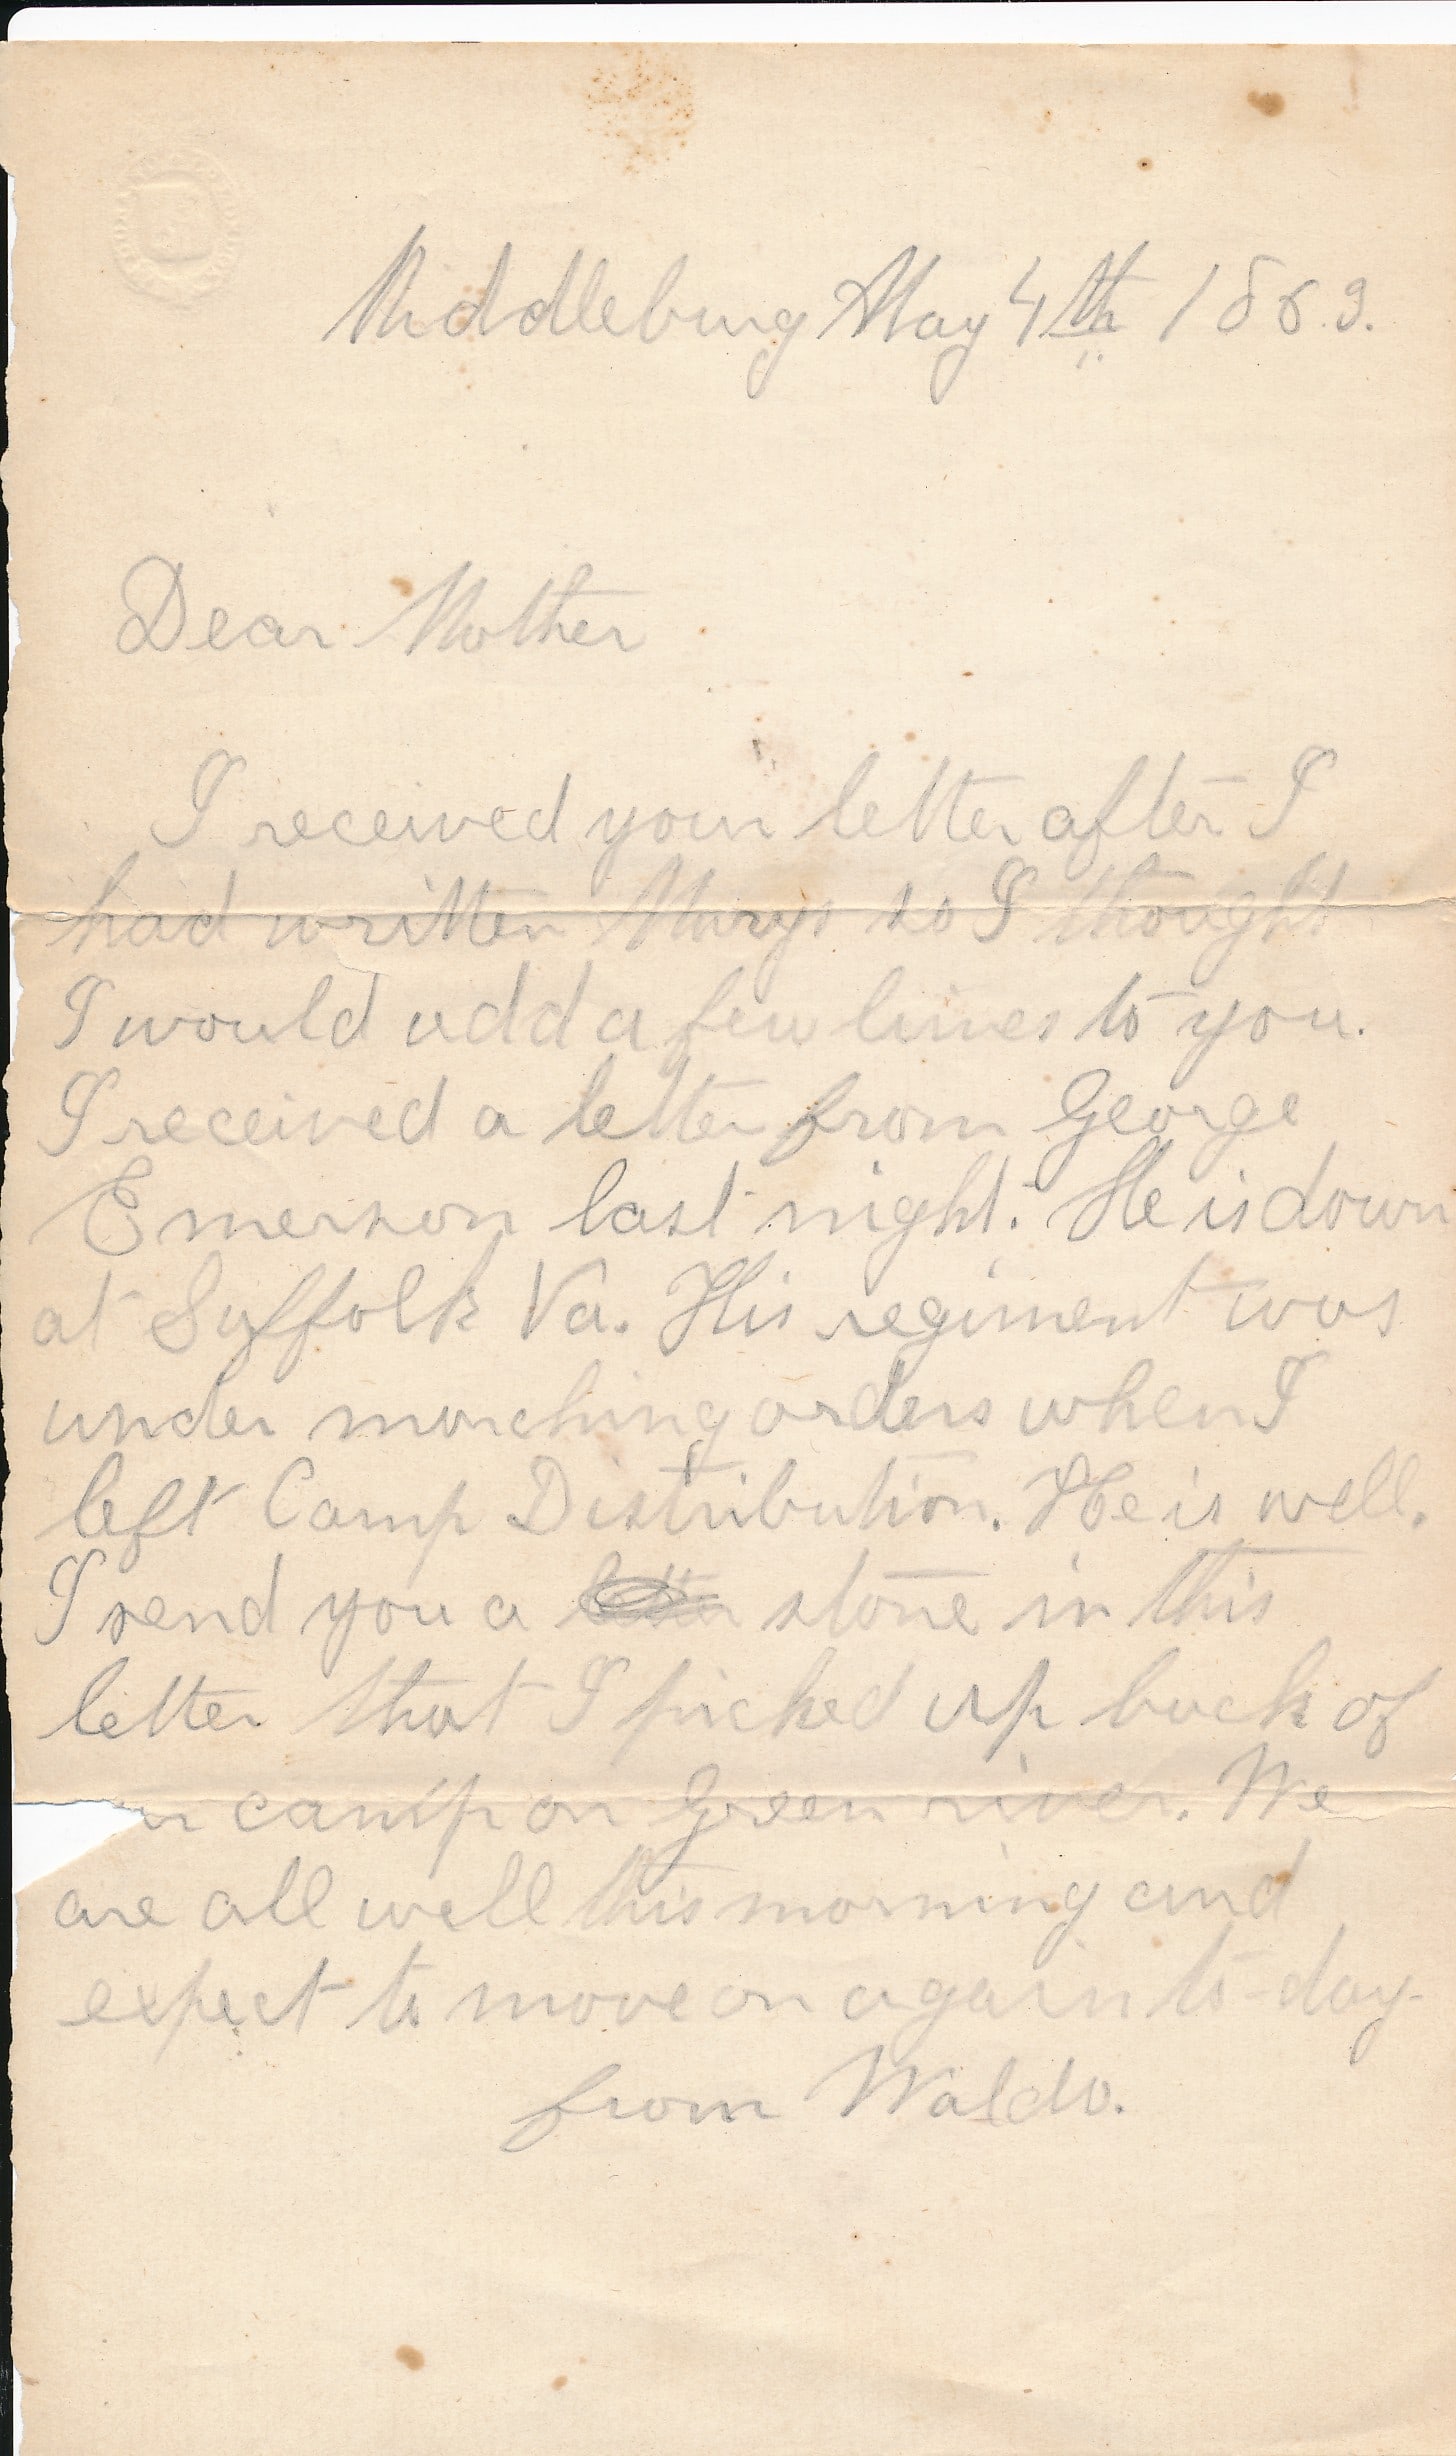 Middleburg May 4th 1863.
Dear Mother
I received your letter after I
had written Marys so I thought
I would add a few lines to you.
I received a letter from George
Emerson last night. He is down
at Suffolk Va. His regiment was
under marching orders when I
left Camp Distribution. He is well.
I send you a stone in this
letter that I picked up back of
camp on Green river. We
are all well this morning and
expect to move on again to-day.
from Waldo.